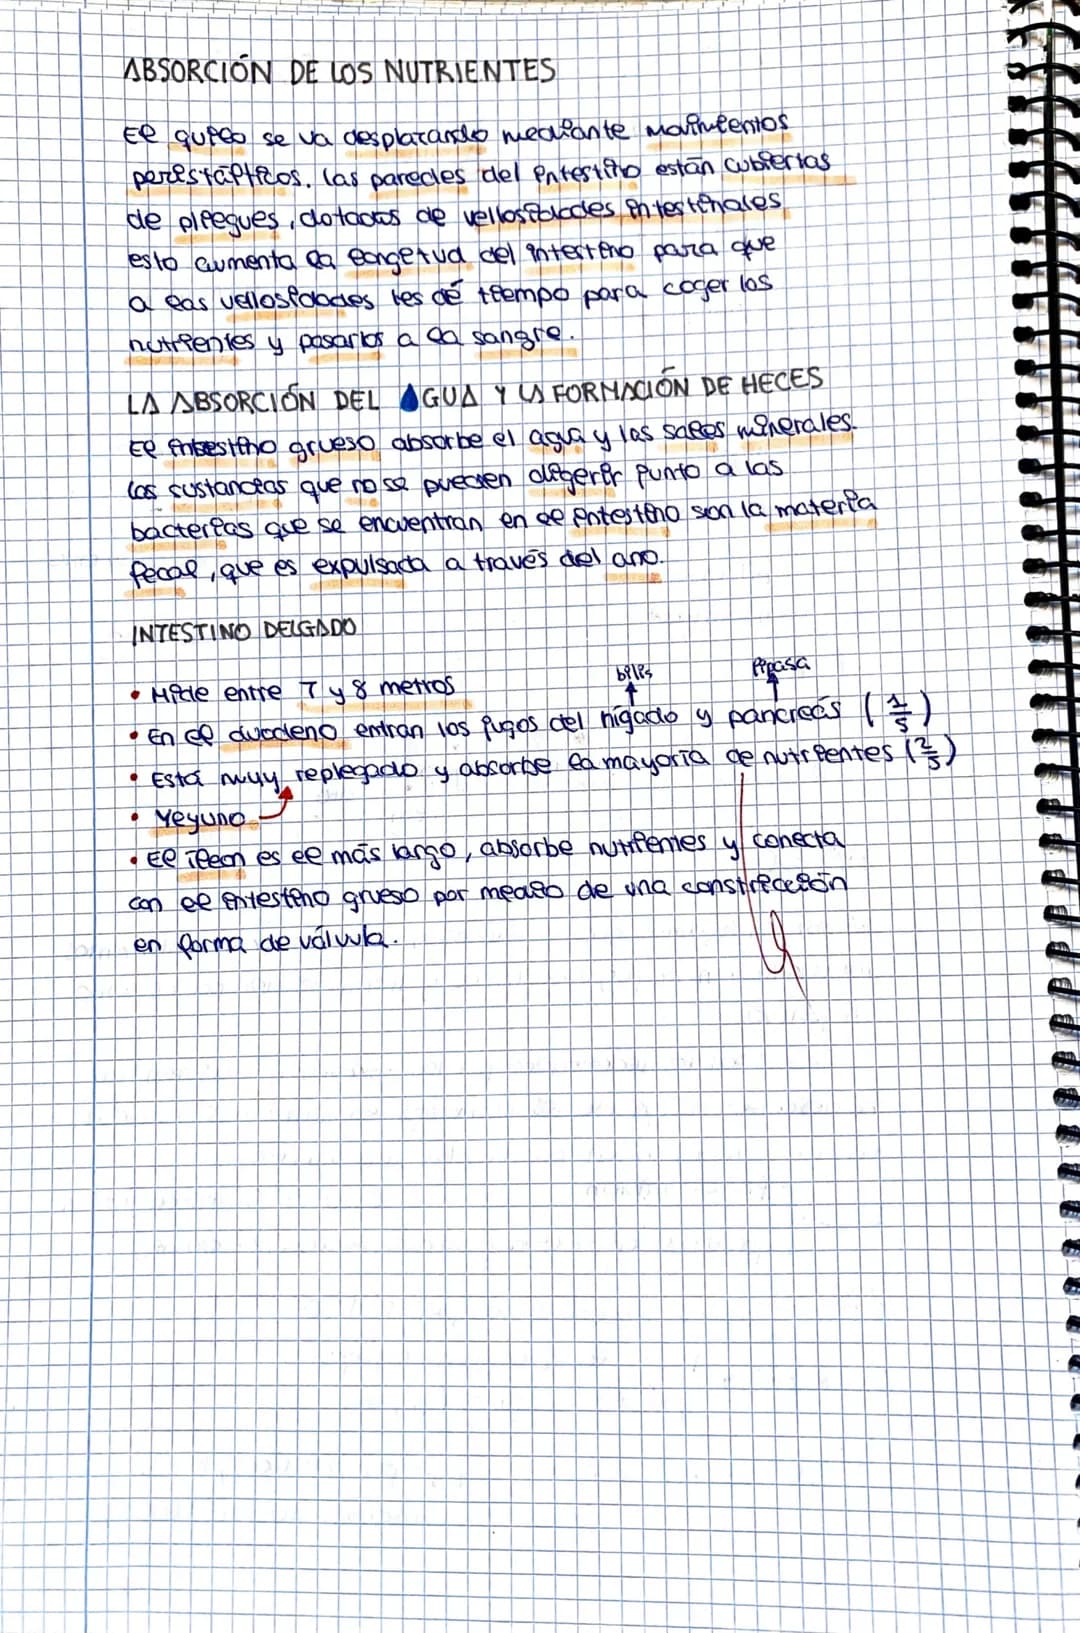 ABSORCIÓN DE LOS NUTRIENTES
El quilo se va desplazando mediante movimientos
peristálticos. Las paredes del intestino están cubiertas
de pliegues, dotadas de vellosidades intestinales,
esto aumenta la longetud del intestino para que
a las vellosidades les dé tiempo para coger los
nutrientes y pasarlos a la sangre.
LA ABSORCIÓN DEL AGUA Y LA FORMACIÓN DE HECES
El intestino grueso absorbe el agua y las sales minerales.
Las sustancias que no se pueden digerir punto a las
bacterias que se encuentran en el intestino son la materia
fecal, que es expulsada a través del ano.
INTESTINO DELGADO
bilis
lipasa
• Mide entre 7 y 8 metros
• En el duodeno entran los jugos del hígado y pancreás (1/5)
• Está muy replegado y absorbe la mayoría de nutrientes (2/5)
• Yeyuno
• El íleon es el más largo, absorbe nutrientes y conecta
con el intestino grueso por medio de una constricción
en forma de válvula.